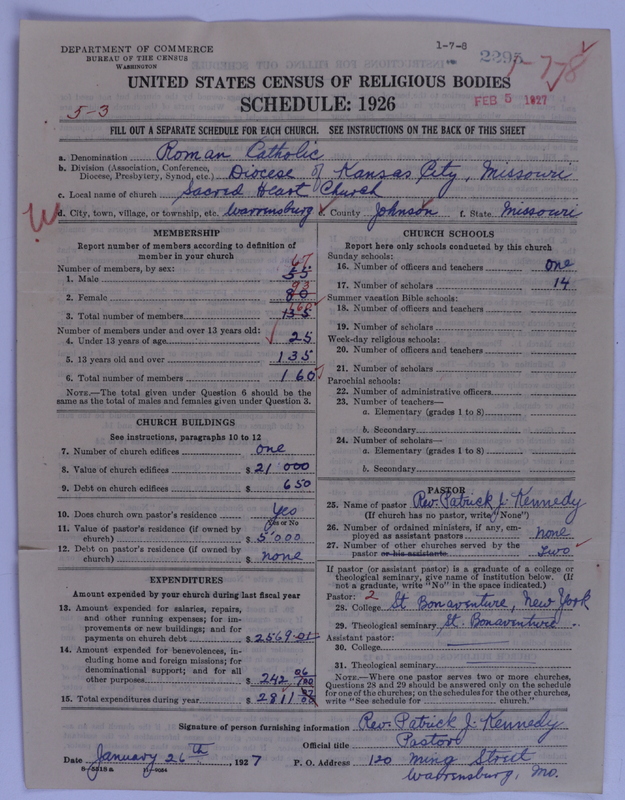 DEPARTMENT OF COMMERCE
BUREAU OF THE CENSUS
WASHINGTON
1-7-8
2295
1-7-8
UNITED STATES CENSUS OF RELIGIOUS BODIES
SCHEDULE: 1926
FEB 5 1927
5-3
FILL OUT A SEPARATE SCHEDULE FOR EACH CHURCH. SEE INSTRUCTIONS ON THE BACK OF THIS SHEET
a. Denomination Roman Catholic
b. Division (Association, Conference, Diocese, Presbytery, Synod, etc.) Diocese of Kansas City, Missouri
c. Local name of church Sacred Heart Church
d. City, town, village, or township, etc. Warrensburg County Johnson f. State Missouri
MEMBERSHIP
Report number of members according to definition of
member in your church
Number of members, by sex:
1. Male 55 67
2. Female 80 93
3. Total number of members 135 160
Number of members under and over 13 years old:
4. Under 13 years of age 25
5. 13 years old and over 135
6. Total number of members 160
NOTE.—The total given under Question 6 should be the
same as the total of males and females given under Question 3.
CHURCH BUILDINGS
See instructions, paragraphs 10 to 12
7. Number of church edifices one
8. Value of church edifices $ 21 000
9. Debt on church edifices $ 650
10. Does church own pastor's residence yes
Yes or No
11. Value of pastor's residence (if owned by
church) $ 5000
12. Debt on pastor's residence (if owned by
church) $ none
EXPENDITURES
Amount expended by your church during last fiscal year
13. Amount expended for salaries, repairs,
and other running expenses; for im-
provements or new buildings; and for
payments on church debt $ 2569 01
14. Amount expended for benevolences, in-
cluding home and foreign missions; for
denominational support; and for all
other purposes $ 242 06/100
15. Total expenditures during year $ 2811
CHURCH SCHOOLS
Report here only schools conducted by this church
Sunday schools:
16. Number of officers and teachers one
17. Number of scholars 14
Summer vacation Bible schools:
18. Number of officers and teachers
19. Number of scholars
Week-day religious schools:
20. Number of officers and teachers
21. Number of scholars
Parochial schools:
22. Number of administrative officers
23. Number of teachers—
a. Elementary (grades 1 to 8)
b. Secondary
24. Number of scholars—
a. Elementary (grades 1 to 8)
b. Secondary
PASTOR
25. Name of pastor Rev. Patrick J. Kennedy
(If church has no pastor, write "None")
26. Number of ordained ministers, if any, em-
ployed as assistant pastors none
27. Number of other churches served by the
pastor or his assistants two
If pastor (or assistant pastor) is a graduate of a college or
theological seminary, give name of institution below. (If
not a graduate, write "No" in the space indicated.)
Pastor: 2
28. College St Bonaventure, New York
29. Theological seminary St. Bonaventure
Assistant pastor:
30. College
31. Theological seminary
NOTE.—Where one pastor serves two or more churches,
Questions 28 and 29 should be answered only on the schedule
for one of the churches; on the schedules for the other churches,
write "See schedule for church."
Signature of person furnishing information Rev. Patrick J. Kennedy
Official title Pastor
Date January 26th, 1927 P. O. Address 120 Ming Street
Warrensburg, Mo.